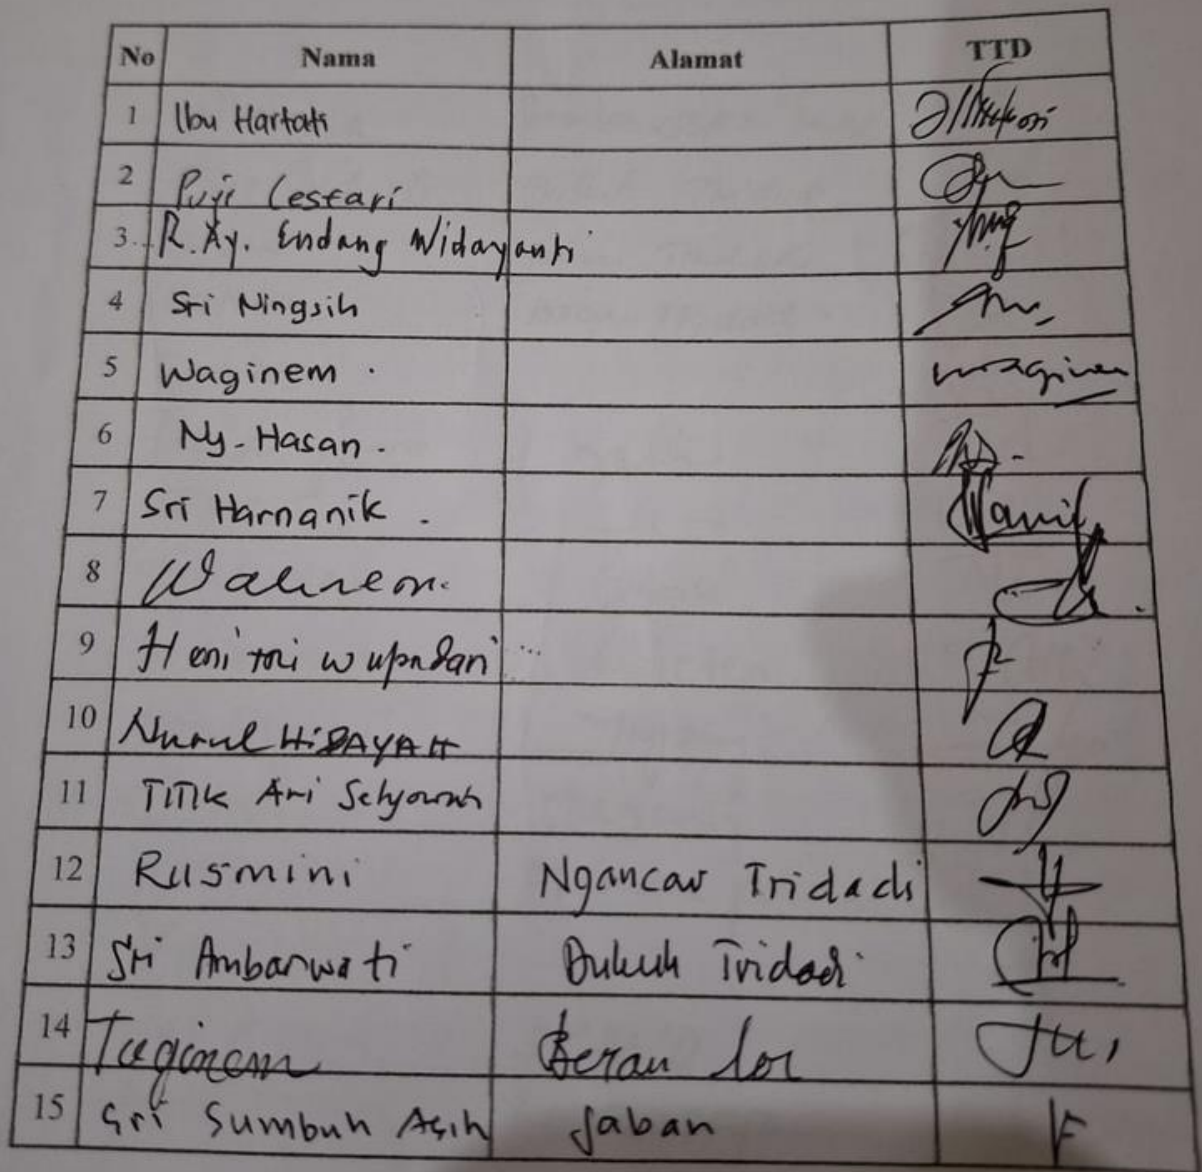 No Nama Alamat TTD
1 Ibu Hartati
2 Puji Lestari
3. R.Ay. Endang Widayanti
4 Sri Ningsih
5 Waginem . Waginem
6 Ny. Hasan .
7 Sri Harnanik . Hanik
8
9 Heni tri wupndari
10 Nurul HIDAYAH
11 TITIK Ari Setyowati
12 Rusmini Ngancar Tridadi
13 Sri Ambarwati Dukuh Tridadi
14 Tuginem Beran lor
15 Sri Sumbuh Asih Jaban